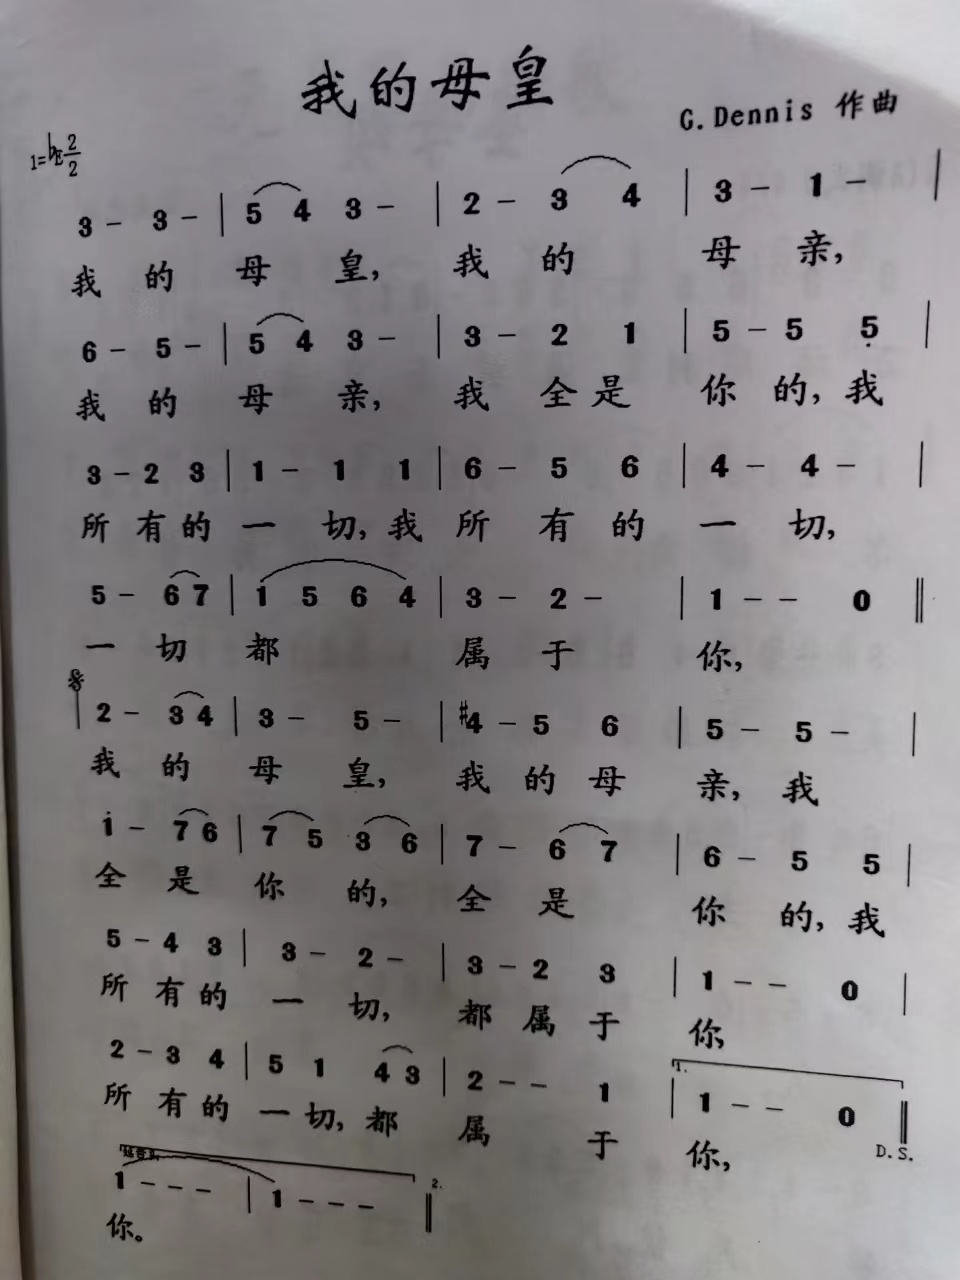 我的母皇
G.Dennis 作曲
1=♭E 2/2
3 - 3 - | 5 4 3 - | 2 - 3 4 | 3 - 1 - |
我 的 母 皇, 我 的 母 亲,
6 - 5 - | 5 4 3 - | 3 - 2 1 | 5 - 5 5̣ |
我 的 母 亲, 我 全 是 你 的, 我
3 - 2 3 | 1 - 1 1 | 6 - 5 6 | 4 - 4 - |
所 有 的 一 切, 我 所 有 的 一 切,
5 - 6 7 | 1 5 6 4 | 3 - 2 - | 1 - - 0 ‖
一 切 都 属 于 你,
𝄋 | 2 - 3 4 | 3 - 5 - | #4 - 5 6 | 5 - 5 - |
我 的 母 皇, 我 的 母 亲, 我
1̇ - 7 6 | 7 5 3 6 | 7 - 6 7 | 6 - 5 5 |
全 是 你 的, 全 是 你 的, 我
5 - 4 3 | 3 - 2 - | 3 - 2 3 | 1 - - 0 |
所 有 的 一 切, 都 属 于 你,
2 - 3 4 | 5 1 4 3 | 2 - - 1 | 1 - - 0 ‖
1.
所 有 的 一 切, 都 属 于 你,
D.S.
1 - - - | 1 - - - ‖
2.
你。